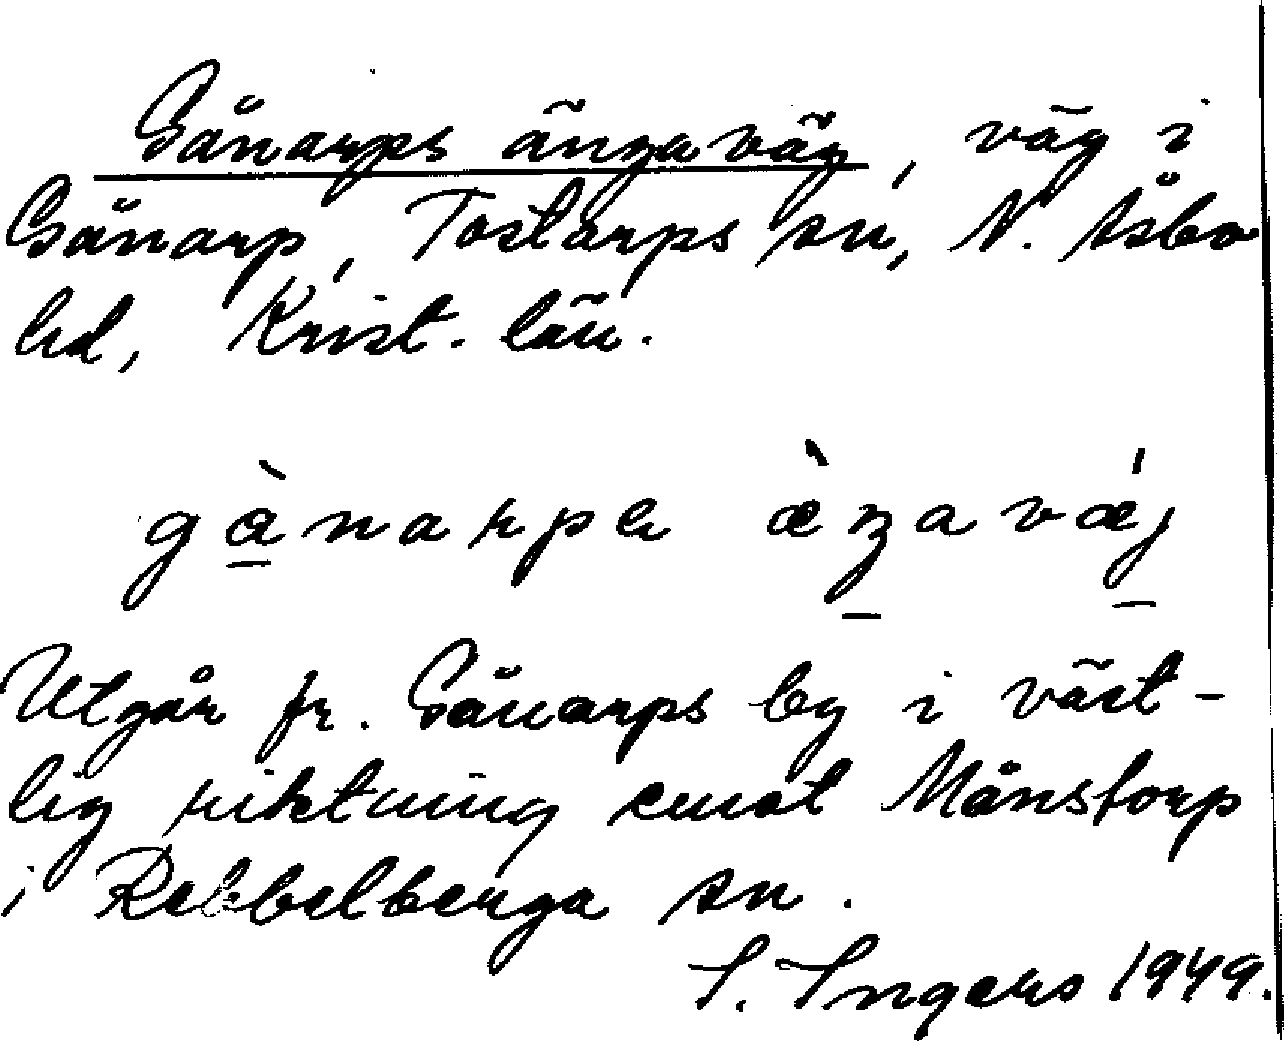 Gånarps ängaväg, väg i
Gånarp, Tostarps sn, N. Åsbo
hd, Krist. län.
gànarps æ̀ŋavǽj
Utgår fr. Gånarps by i väst-
lig riktning emot Månstorp
i Rebbelberga sn.
I. Ingers 1949.